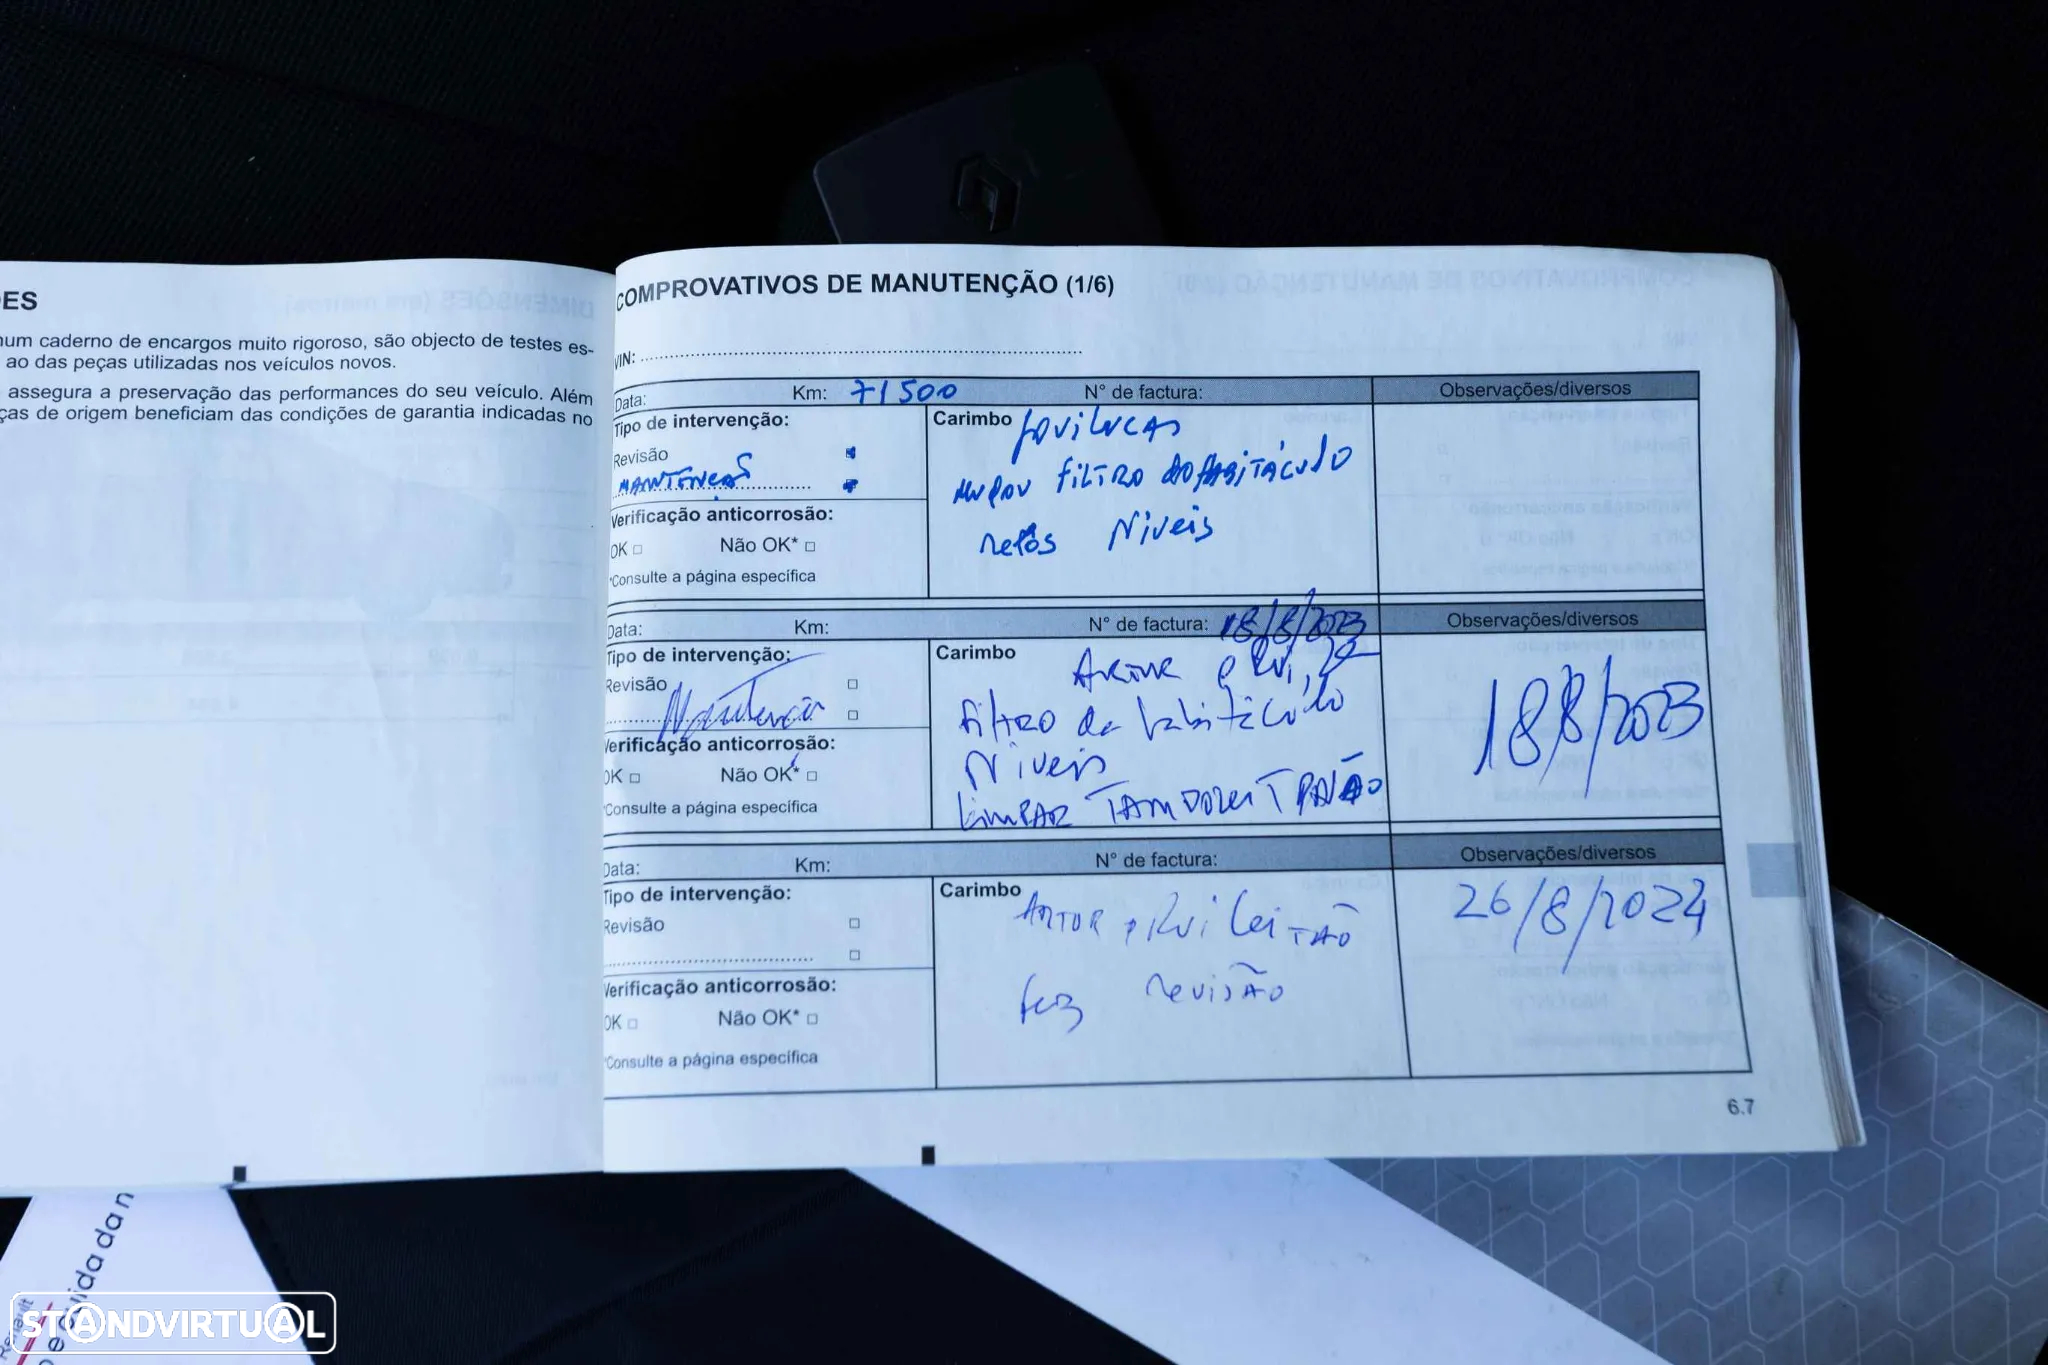 ES
num caderno de encargos muito rigoroso, são objecto de testes es-
ao das peças utilizadas nos veículos novos.
assegura a preservação das performances do seu veículo. Além
ças de origem beneficiam das condições de garantia indicadas no
COMPROVATIVOS DE MANUTENÇÃO (1/6)
VIN:
Data: Km: 71500 N° de factura: Observações/diversos
Tipo de intervenção: Carimbo
Revisão
Verificação anticorrosão:
OK Não OK*
*Consulte a página específica
mudou filtro do habitáculo
Niveis
Data: Km: N° de factura: 18/8/2023 Observações/diversos
Tipo de intervenção: Carimbo
Revisão
Manutenção
Verificação anticorrosão:
OK Não OK*
*Consulte a página específica
Filtro do habitáculo
Niveis
Limpar
18/8/2023
Data: Km: N° de factura: Observações/diversos
Tipo de intervenção: Carimbo
Revisão
Verificação anticorrosão:
OK Não OK*
*Consulte a página específica
Rui Leitão
fez revisão
26/8/2024
6.7
Renault
e cuida da n
STANDVIRTUAL